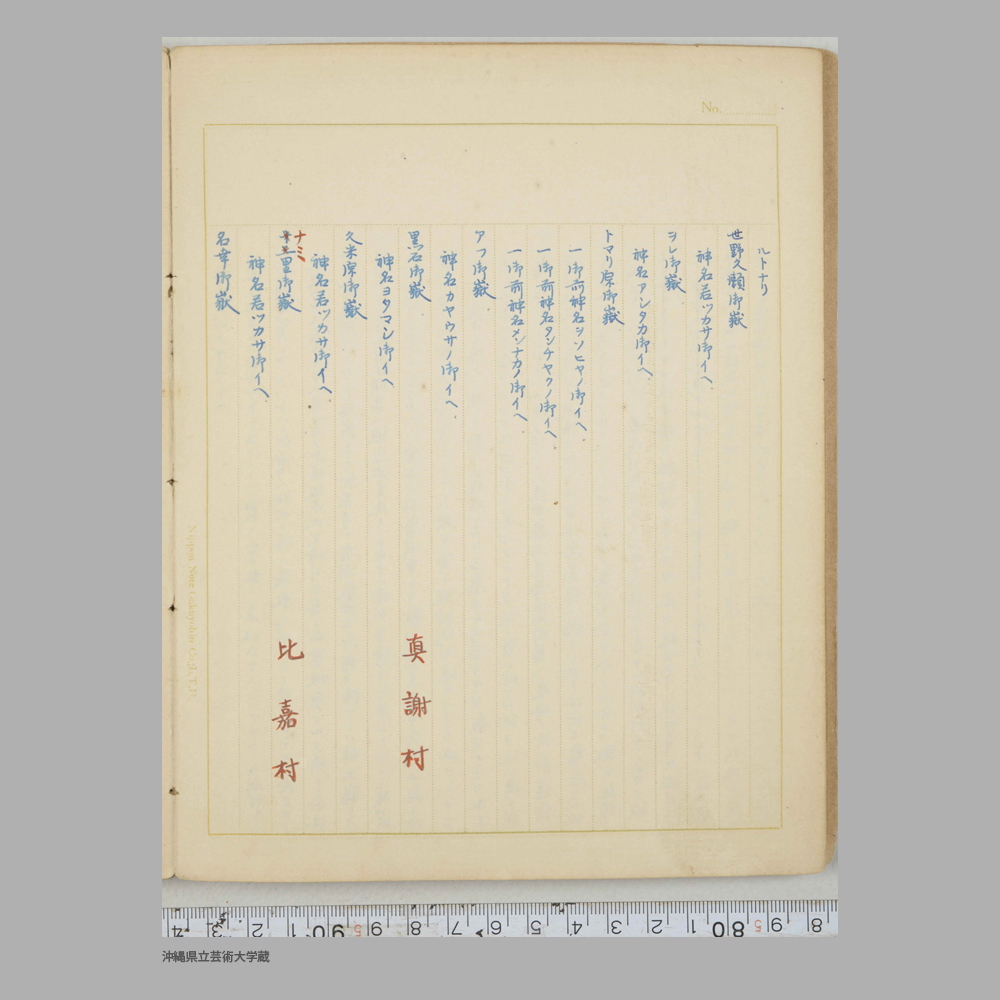 No.
ルトナリ
世野久瀬御嶽
神名若ツカサ御イベ
ヨレ御嶽
神名アンタカ御イベ
トマリ原御嶽
一御前神名ヨソヒヤノ御イベ
一御前神名タンチヤクノ御イベ
一御前神名メンナカノ御イベ
アフ御嶽
神名カヤウサノ御イベ
黒石御嶽 真謝村
神名ヨタマシ御イベ
久米原御嶽
神名若ツカサ御イベ
ナミ里御嶽 比嘉村
神名若ツカサ御イベ
名幸御嶽
Nippon Note Gakuyohin Co.,L.T.D.
沖縄県立芸術大学蔵